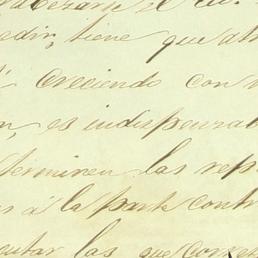 edir, tiene que
creciendo con
es indispensab
terminen las rep
á la parte cont
entar las que corre